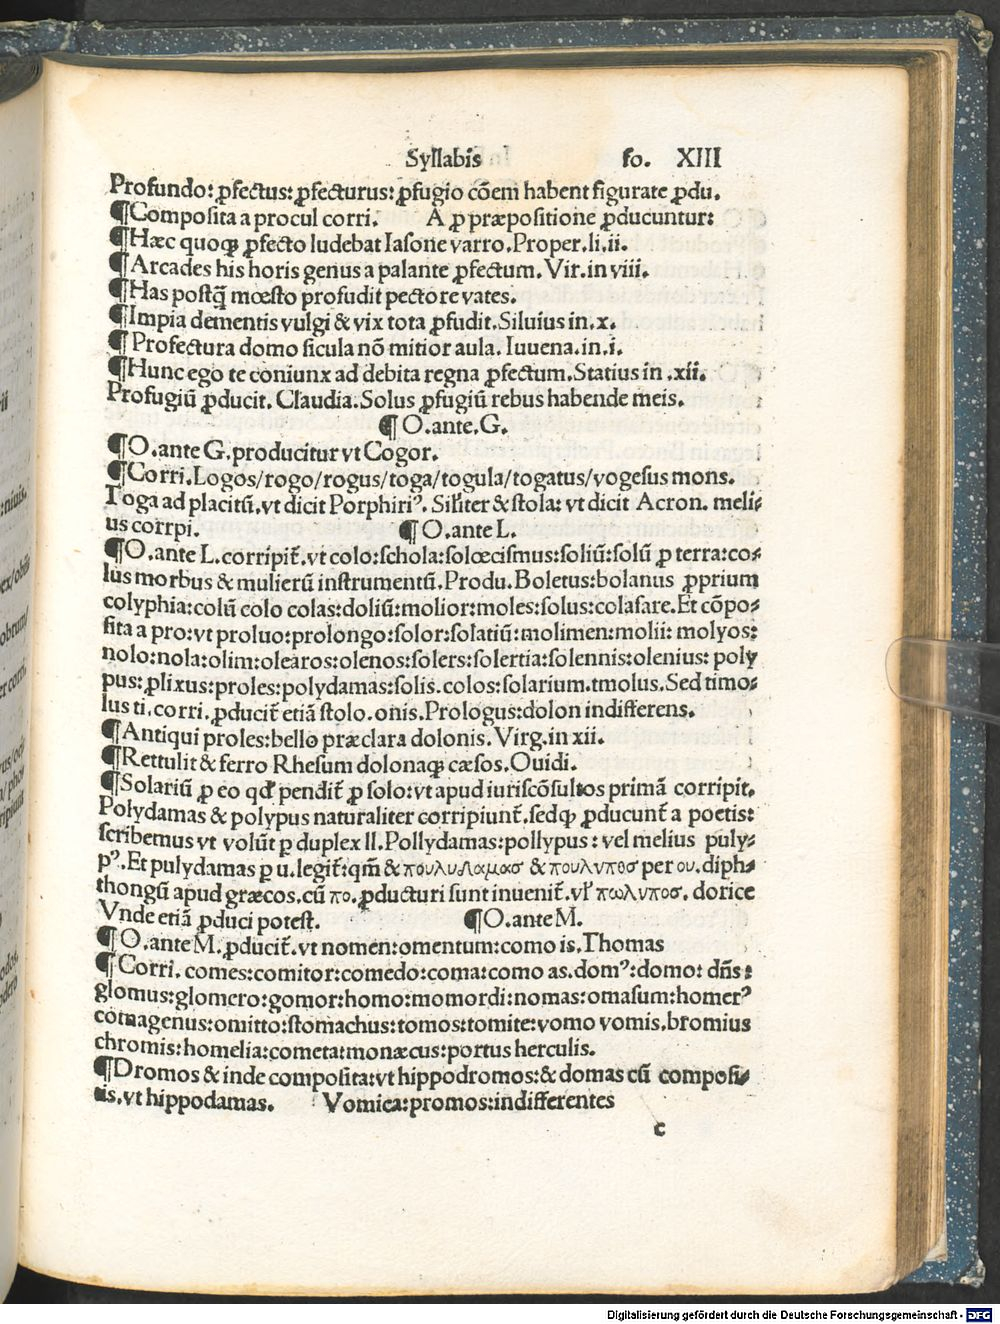 Syllabis fo. XIII
Profundo: ꝓfectus: ꝓfecturus: ꝓfugio cōem habent figurate ꝓdu.
¶Composita a procul corri. A ꝓ præpositione ꝓducuntur:
¶Hæc quoqꝫ ꝓfecto ludebat Iasone varro. Proper. li. ii.
¶Arcades his horis genus a palante ꝓfectum. Vir. in viii.
¶Has postq̄ mœsto profudit pectore vates.
¶Impia dementis vulgi & vix tota ꝓfudit. Siluius in. x.
¶Profectura domo sicula nō mitior aula. Iuuena. in. i.
¶Hunc ego te coniunx ad debita regna ꝓfectum. Statius in .xii.
Profugiū ꝓducit. Claudia. Solus ꝓfugiū rebus habende meis.
¶O. ante. G.
¶O. ante G. producitur vt Cogor.
¶Corri. Logos/rogo/rogus/toga/togula/togatus/vogesus mons.
Toga ad placitū. vt dicit Porphiriꝰ. Sil̄iter & stola: vt dicit Acron. meli⸗
us corrpi. ¶O. ante L.
¶O. ante L. corripit̄. vt colo: schola: solœcismus: soliū: solū ꝓ terra: co⸗
lus morbus & mulierū instrumentū. Produ. Boletus: bolanus ꝓprium
colyphia: colū colo colas: doliū: molior: moles: solus: colasare. Et cōpo⸗
sita a pro: vt proluo: prolongo: solor: solatiū: molimen: molii: molyos:
nolo: nola: olim: olearos: olenos: solers: solertia: solennis: olenius: poly
pus: ꝓlixus: proles: polydamas: solis. colos: solarium. tmolus. Sed timo⸗
lus ti. corri. ꝓducit̄ etiā stolo. onis. Prologus: dolon indifferens.
¶Antiqui proles: bello præclara dolonis. Virg. in xii.
¶Rettulit & ferro Rhesum dolonaqꝫ cæsos. Ouidi.
¶Solariū ꝓ eo qd̄ pendit̄ ꝓ solo: vt apud iuriscōsultos primā corripit.
Polydamas & polypus naturaliter corripiunt̄. sedqꝫ ꝓducunt̄ a poetis:
scribemus vt volūt ꝑ duplex ll. Pollydamas: pollypus: vel melius puly⸗
pꝰ. Et pulydamas ꝑ u. legit̄: qm̄ & πουλυδαμασ & πουλυποσ per ου. diph⸗
thongū apud græcos. cū πο. ꝓducturi sunt inuenit̄. vl̄ πωλυποσ. dorice
Vnde etiā ꝓduci potest. ¶O. ante M.
¶O. ante M. ꝓducit̄. vt nomen: omentum: como is. Thomas
¶Corri. comes: comitor: comedo: coma: como as. domꝰ: domo: dn̄s:
glomus: glomero: gomor: homo: momordi: nomas: omasum: homerꝰ
comagenus: omitto: stomachus: tomos: tomite: vomo vomis. bromius
chromis: homelia: cometa: monæcus: portus herculis.
¶Dromos & inde composita: vt hippodromos: & domas cū composi⸗
tis. vt hippodamas. Vomica: promos: indifferentes
c
Digitalisierung gefördert durch die Deutsche Forschungsgemeinschaft - DFG